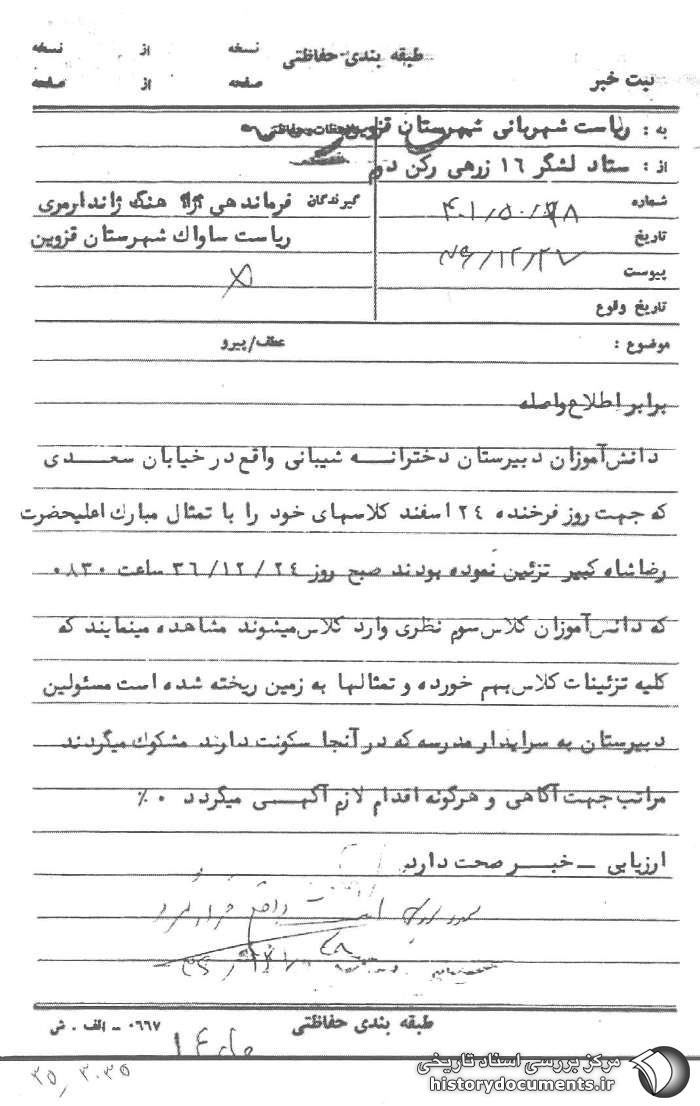 نسخه از نسخه
طبقه بندی حفاظتی
صفحه از صفحه
ثبت خبر
به : ریاست شهربانی شهرستان قزوین
از : ستاد لشگر ۱۶ زرهی رکن دم
شماره ۴۰۱/۵۰/
گیرندگان فرماندهی هنگ ژاندارمری
تاریخ ۳۶/۱۲/۲۷
ریاست ساواك شهرستان قزوین
پیوست
تاریخ وقوع
موضوع : عطف/پیرو
برابر اطلاع واصله
دانش‌آموزان دبیرستان دخترانه شیبانی واقع در خیابان سعدی
که جهت روز فرخنده ۲۴ اسفند کلاسهای خود را با تمثال مبارك اعلیحضرت
رضاشاه کبیر تزئین نموده بودند صبح روز ۲۴ / ۱۲ / ۳۶ ساعت ۰۸۳۰
که دانش‌آموزان کلاس سوم نظری وارد کلاس میشوند مشاهده مینمایند که
کلیه تزئینات کلاس بهم خورده و تمثالها به زمین ریخته شده است مسئولین
دبیرستان به سرایدار مدرسه که در آنجا سکونت دارند مشکوك میگردند
مراتب جهت آگاهی و هرگونه اقدام لازم آگهی میگردد ۰٪
ارزیابی ــ خبر صحت دارد
طبقه بندی حفاظتی
۰۶۶۷ - الف . ش
۳۵/۳۰۳۵
مرکز بررسی اسناد تاریخی
historydocuments.ir